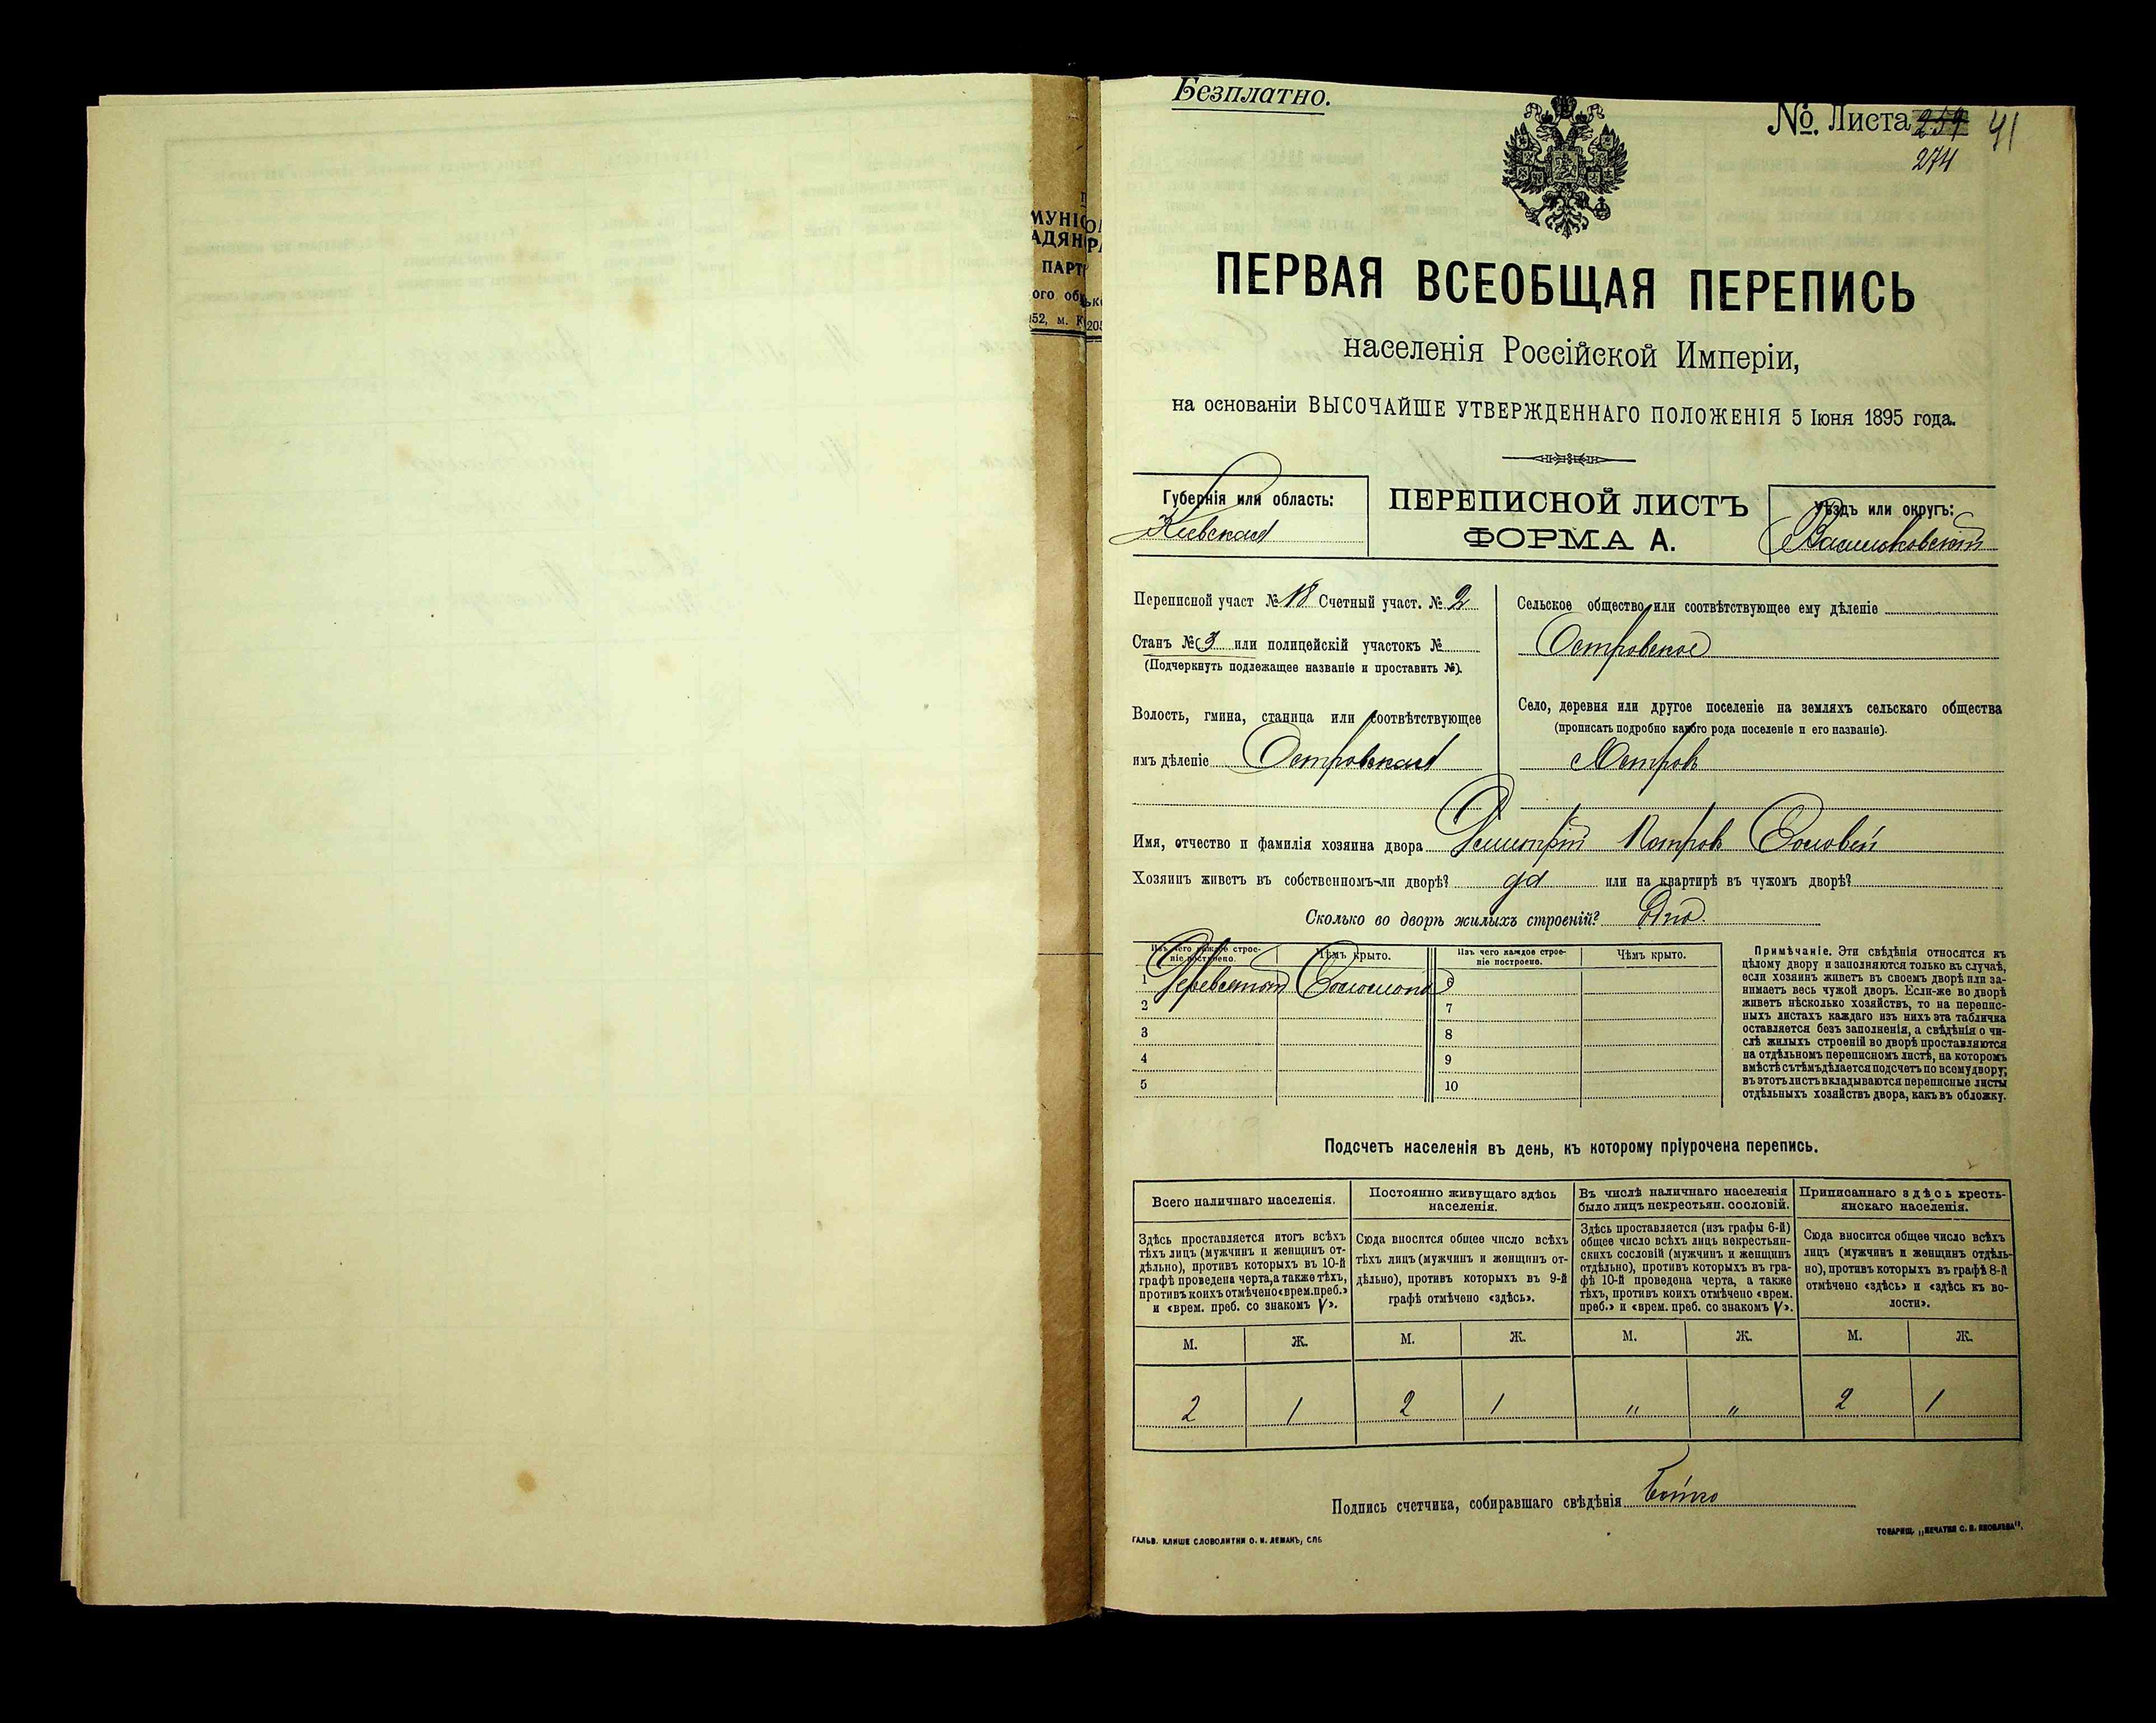 МУНІС
АДЯН
ПАРТ
ого об
52, м. К
Безплатно.
№ Листа 259 41
274
ПЕРВАЯ ВСЕОБЩАЯ ПЕРЕПИСЬ
населенія Россійской Имперіи,
на основаніи ВЫСОЧАЙШЕ УТВЕРЖДЕННАГО ПОЛОЖЕНІЯ 5 Іюня 1895 года.
Губернія или область:
Кіевская
ПЕРЕПИСНОЙ ЛИСТЪ
ФОРМА А.
Уѣздъ или округъ:
Васильковскій
Переписной участ № 18 Счетный участ. № 2
Станъ № 3 или полицейскій участокъ №
(Подчеркнуть подлежащее названіе и проставить №).
Волость, гмина, станица или соотвѣтствующее
имъ дѣленіе Островская
Сельское общество или соотвѣтствующее ему дѣленіе
Островское
Село, деревня или другое поселеніе на земляхъ сельскаго общества
(прописать подробно какого рода поселеніе и его названіе).
с Островъ
Имя, отчество и фамилія хозяина двора Димитрій Петровъ Соловей
Хозяинъ живетъ въ собственномъ-ли дворѣ? да или на квартирѣ въ чужомъ дворѣ?
Сколько во дворѣ жилыхъ строеній? Одно.
Изъ чего каждое строе-
ніе построено.
Чѣмъ крыто.
Изъ чего каждое строе-
ніе построено.
Чѣмъ крыто.
1 Деревянное Соломою 6
2 7
3 8
4 9
5 10
Примѣчаніе. Эти свѣдѣнія относятся къ
цѣлому двору и заполняются только въ случаѣ,
если хозяинъ живетъ въ своемъ дворѣ или за-
нимаетъ весь чужой дворъ. Если-же во дворѣ
живетъ нѣсколько хозяйствъ, то на перепис-
ныхъ листахъ каждаго изъ нихъ эта табличка
оставляется безъ заполненія, а свѣдѣнія о чи-
слѣ жилыхъ строеній во дворѣ проставляются
на отдѣльномъ переписномъ листѣ, на которомъ
вмѣстѣ съ тѣмъ дѣлается подсчетъ по всему двору;
въ этотъ листъ вкладываются переписные листы
отдѣльныхъ хозяйствъ двора, какъ въ обложку.
Подсчетъ населенія въ день, къ которому пріурочена перепись.
Всего наличнаго населенія.
Здѣсь проставляется итогъ всѣхъ
тѣхъ лицъ (мужчинъ и женщинъ от-
дѣльно), противъ которыхъ въ 10-й
графѣ проведена черта, а также тѣхъ,
противъ коихъ отмѣчено «врем. преб.»
и «врем. преб. со знакомъ V».
Постоянно живущаго здѣсь
населенія.
Сюда вносится общее число всѣхъ
тѣхъ лицъ (мужчинъ и женщинъ от-
дѣльно), противъ которыхъ въ 9-й
графѣ отмѣчено «здѣсь».
Въ числѣ наличнаго населенія
было лицъ некрестьян. сословій.
Здѣсь проставляется (изъ графы 6-й)
общее число всѣхъ лицъ некрестьян-
скихъ сословій (мужчинъ и женщинъ
отдѣльно), противъ которыхъ въ гра-
фѣ 10-й проведена черта, а также
тѣхъ, противъ коихъ отмѣчено «врем.
преб.» и «врем. преб. со знакомъ V».
Приписаннаго здѣсь кресть-
янскаго населенія.
Сюда вносится общее число всѣхъ
лицъ (мужчинъ и женщинъ отдѣль-
но), противъ которыхъ въ графѣ 8-й
отмѣчено «здѣсь» и «здѣсь въ во-
лости».
М. Ж. М. Ж. М. Ж. М. Ж.
2 1 2 1 " " 2 1
Подпись счетчика, собиравшаго свѣдѣнія Бойко
ГАЛЬВ. КЛИШЕ СЛОВОЛИТНИ О. И. ЛЕМАНЪ, СПБ.
ТОВАРИЩ. „ПЕЧАТНЯ С. П. ЯКОВЛЕВА".